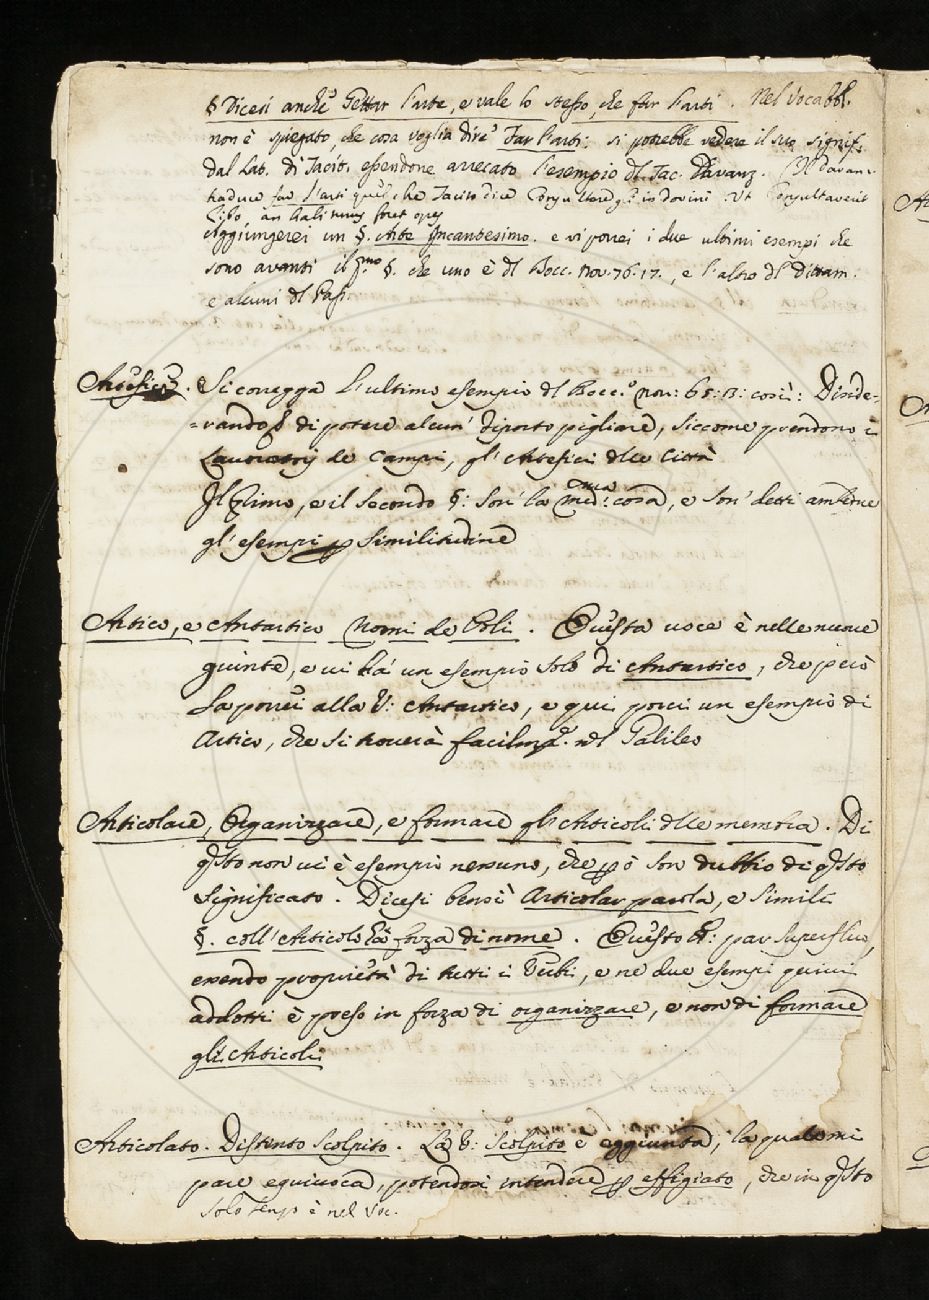 § Dicesi anche Gettar l'arte, e vale lo stesso, che far l'arti. Nel Vocabb.
non è spiegato, che cosa voglia dire Far l'arti; si potrebbe vedere il suo signif.
dal Lat. di Tacit. essendone arrecato l'esempio dl Tac. Davanz. Il Davanz.
traduce far l'arti quel che Tacito dice Consultare gl' indovini. Ut Consultaverit
Libo an habiturus foret opes
Aggiungerei un §. Arte Incantesimo. e vi porrei i due ultimi esempi che
sono avanti il pmo §. che uno è dl Bocc. nov. 76. 17., e l'altro dl Dittam.
e alcuni dl Pass.
Artefice. Si corregga l'ultimo esempio dl Bocc. nov: 65: 3: così: Diside-
-rando di potere alcun' diporto pigliare, siccome prendono i
Lavoratorj de Campi, gl' Artefici dlle Città
Il Primo, e il secondo §: son' la medma: cosa, e son' detti ambedue
gl' esempi p similitudine
Artico, e Antartico Nomi de Poli. Questa voce è nelle nuove
giunte, e vi ha un esempio solo di Antartico, che perciò
la porrei alla V: Antartico, e qui porrei un esempio di
Artico, che si troverà facilmte. nl Galileo
Articolare, Organizzare, e formare gl' Articoli dlle membra. Di
qsto non vi è esempio nessuno, che pò son dubbio di qsto
significato. Dicesi bensì Articolar parola, e simili
§. coll' Articolo ha forza di nome. Questo §: par superfluo,
essendo proprietà di tutti i Verbi, e ne due esempi quivi
addotti è preso in forza di organizzare, e non di formare
gli Articoli
Articolato. Distinto Scolpito. La V: Scolpito è aggiunta, la qual mi
pare equivoca, potendosi intendere p effigiato, che in qsto
solo senso è nel Voc.